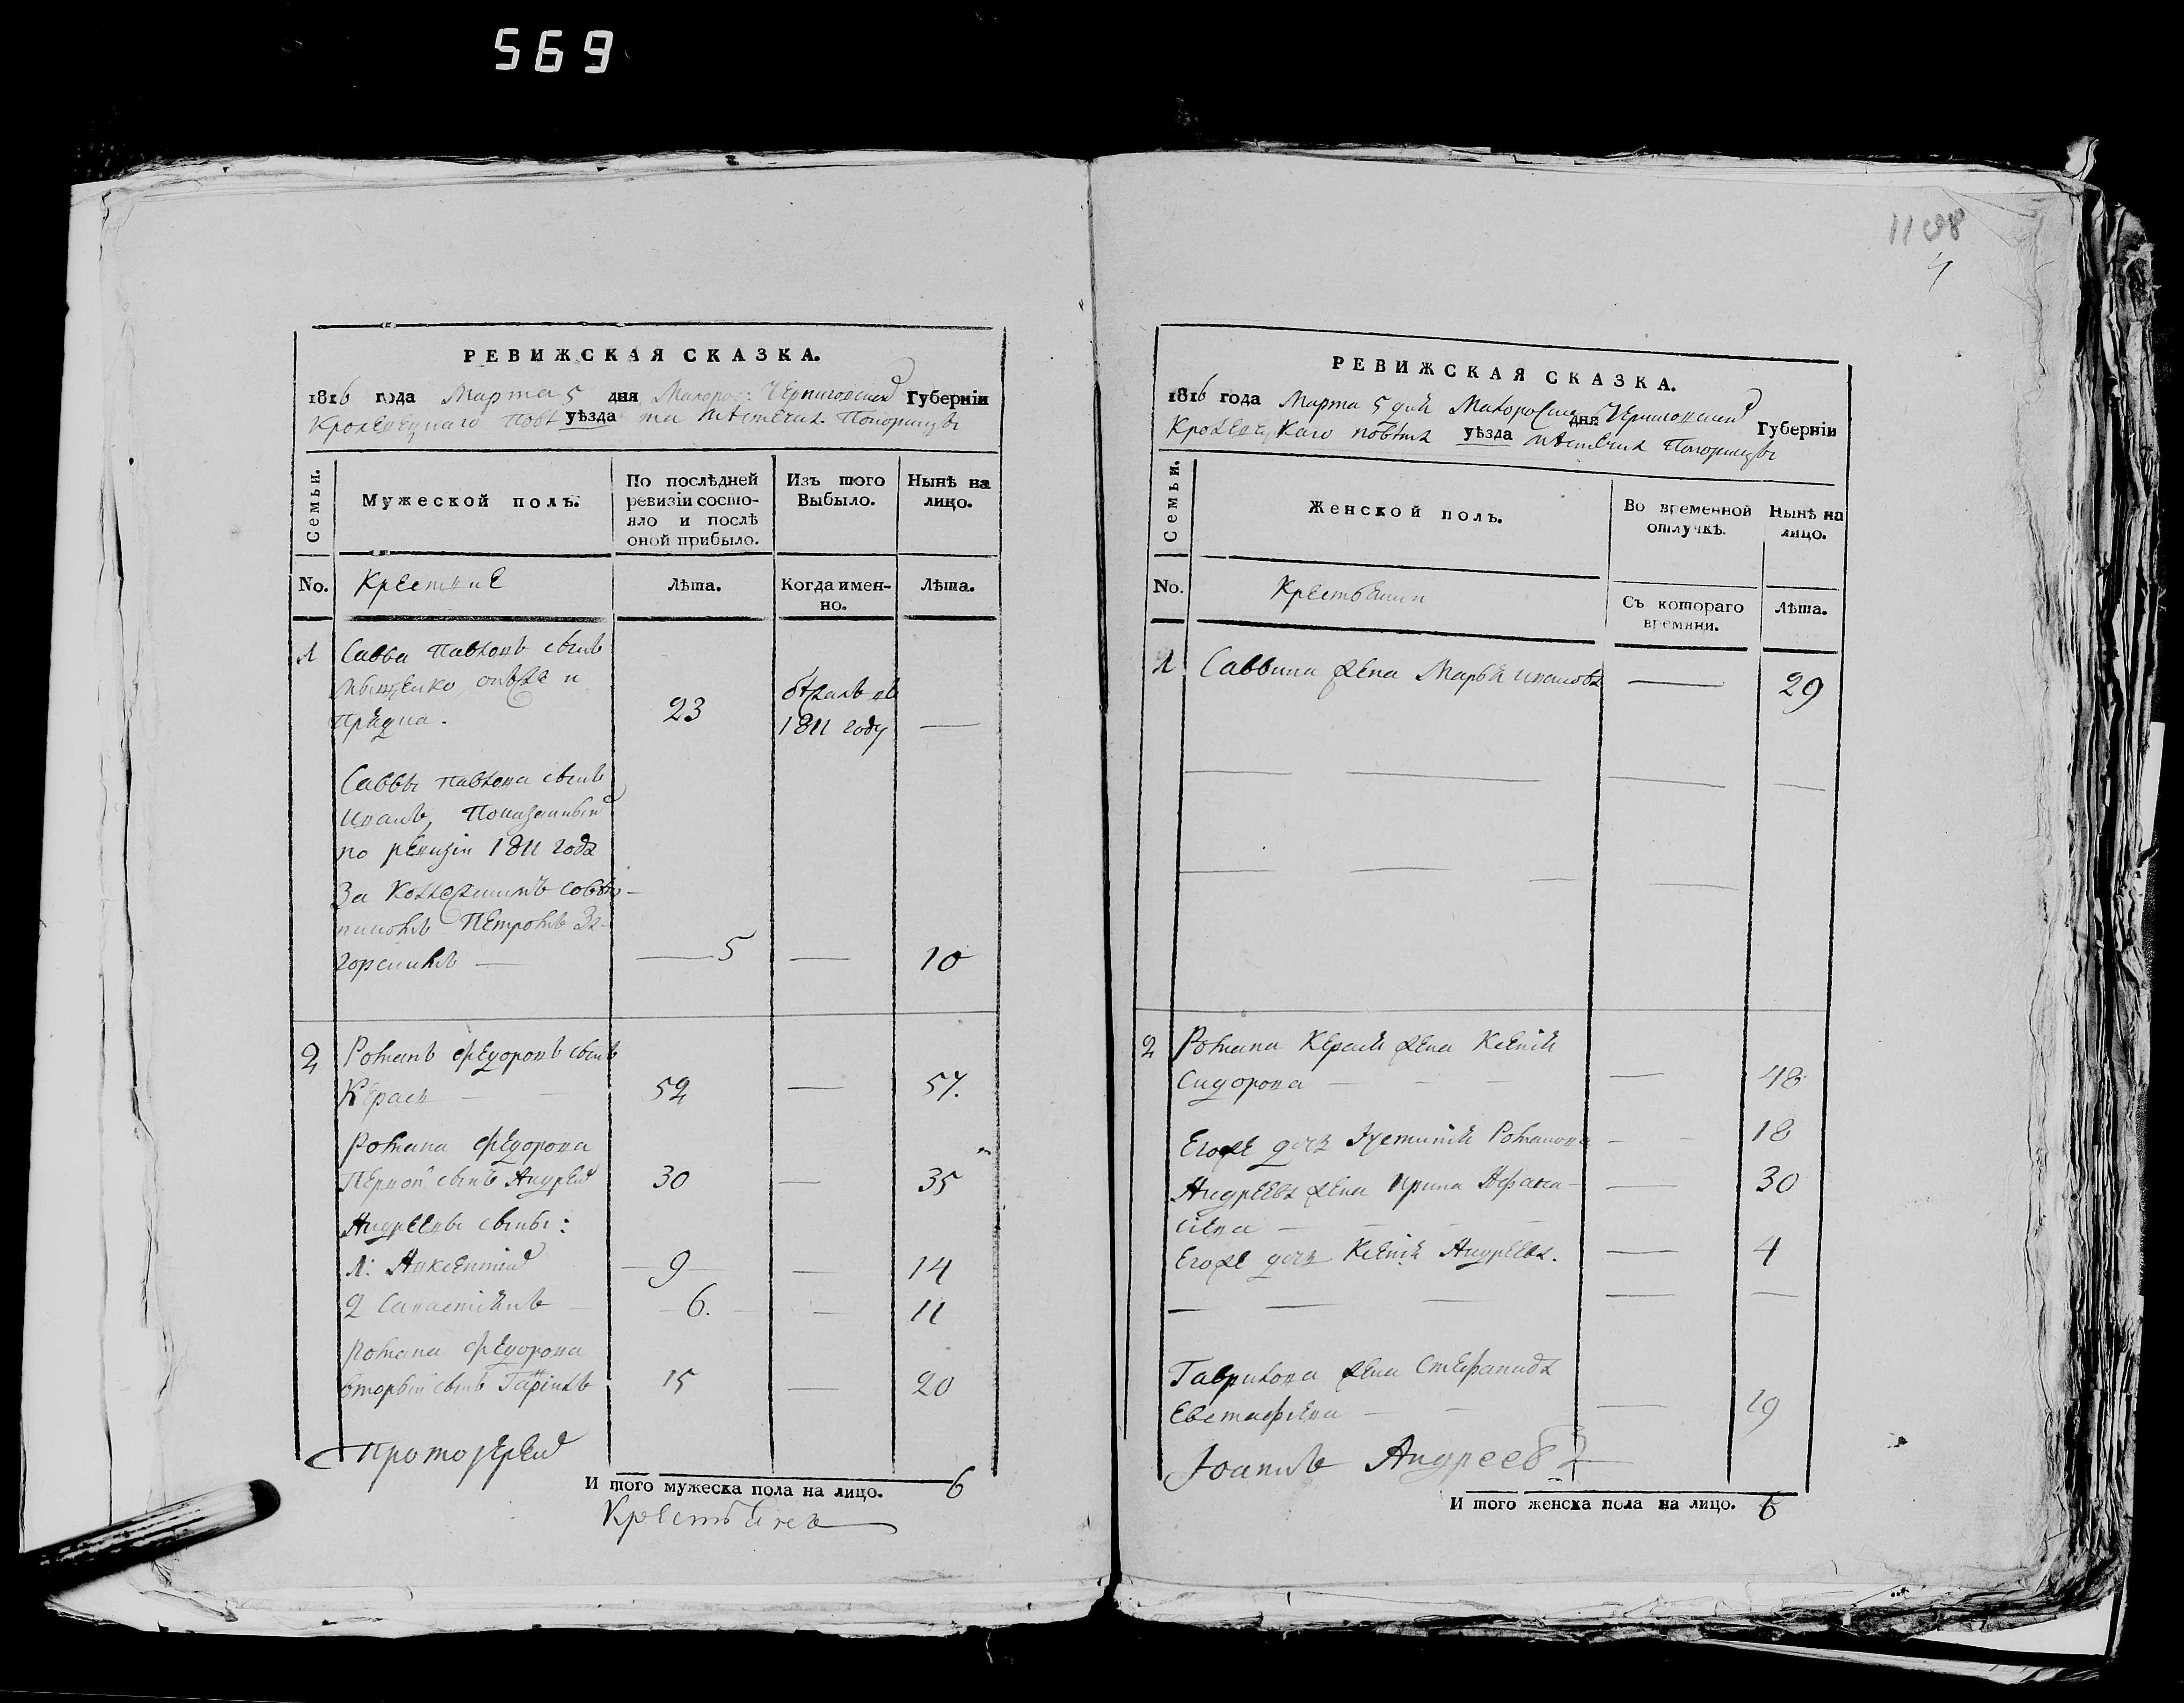 569
1108
4
РЕВИЖСКАЯ СКАЗКА.
1816 года Марта 5 дня Малорос: Черниговской Губерніи
Кролевецкаго пов: уѣзда мѣстечка Понорницѣ
Семьи.
Мужеской полъ.
По послѣдней ревизіи состо-
яло и послѣ
оной прибыло.
Изъ того
Выбыло.
Нынѣ на
лицо.
No.
Крестяне
Лѣта.
Когда имен-
но.
Лѣта.
1 Савва Павловъ сынъ
23 бѣжалъ въ
1811 году —
Саввы Павлова сынъ
Иванъ, Показанный
по ревизіи 1811 года
За Коллежскимъ совѣт-
никомъ Петромъ За-
горскимъ — 5 — 10
2 Романъ Федоровъ сынъ
Керасъ 52 — 57.
Романа Федорова
Первой сынъ Андрей 30 — 35
Андреевы сыны:
1: Авксентий 9 — 14
2 Савастіянъ 6. — 11
Романа Федорова
вторый сынъ Гаврiилъ 15 — 20
Протоіерей
И того мужеска пола на лицо. 6
РЕВИЖСКАЯ СКАЗКА.
1816 года Марта 5 дня Малоросій дня Черниговской Губерніи
Кролевецкаго повѣта уѣзда мѣстечка Понорницѣ
Семьи.
Женской полъ.
Во временной
отлучкѣ.
Нынѣ на
лицо.
No.
Крестьянки
Съ котораго
времяни.
Лѣта.
1 Саввина жена Марья Иванова — 29
2 Романа Керася жена Ксенія
Сидорова — 48
Егоже дочь Іустинія Романова — 18
Андреева жена Ирина Афана-
сіева — 30
Егоже дочь Ксенія Андреева. — 4
Гаврилова жена Стефанида
Евстафіева — 19
Іоаннъ Андреевъ
И того женска пола на лицо. 6